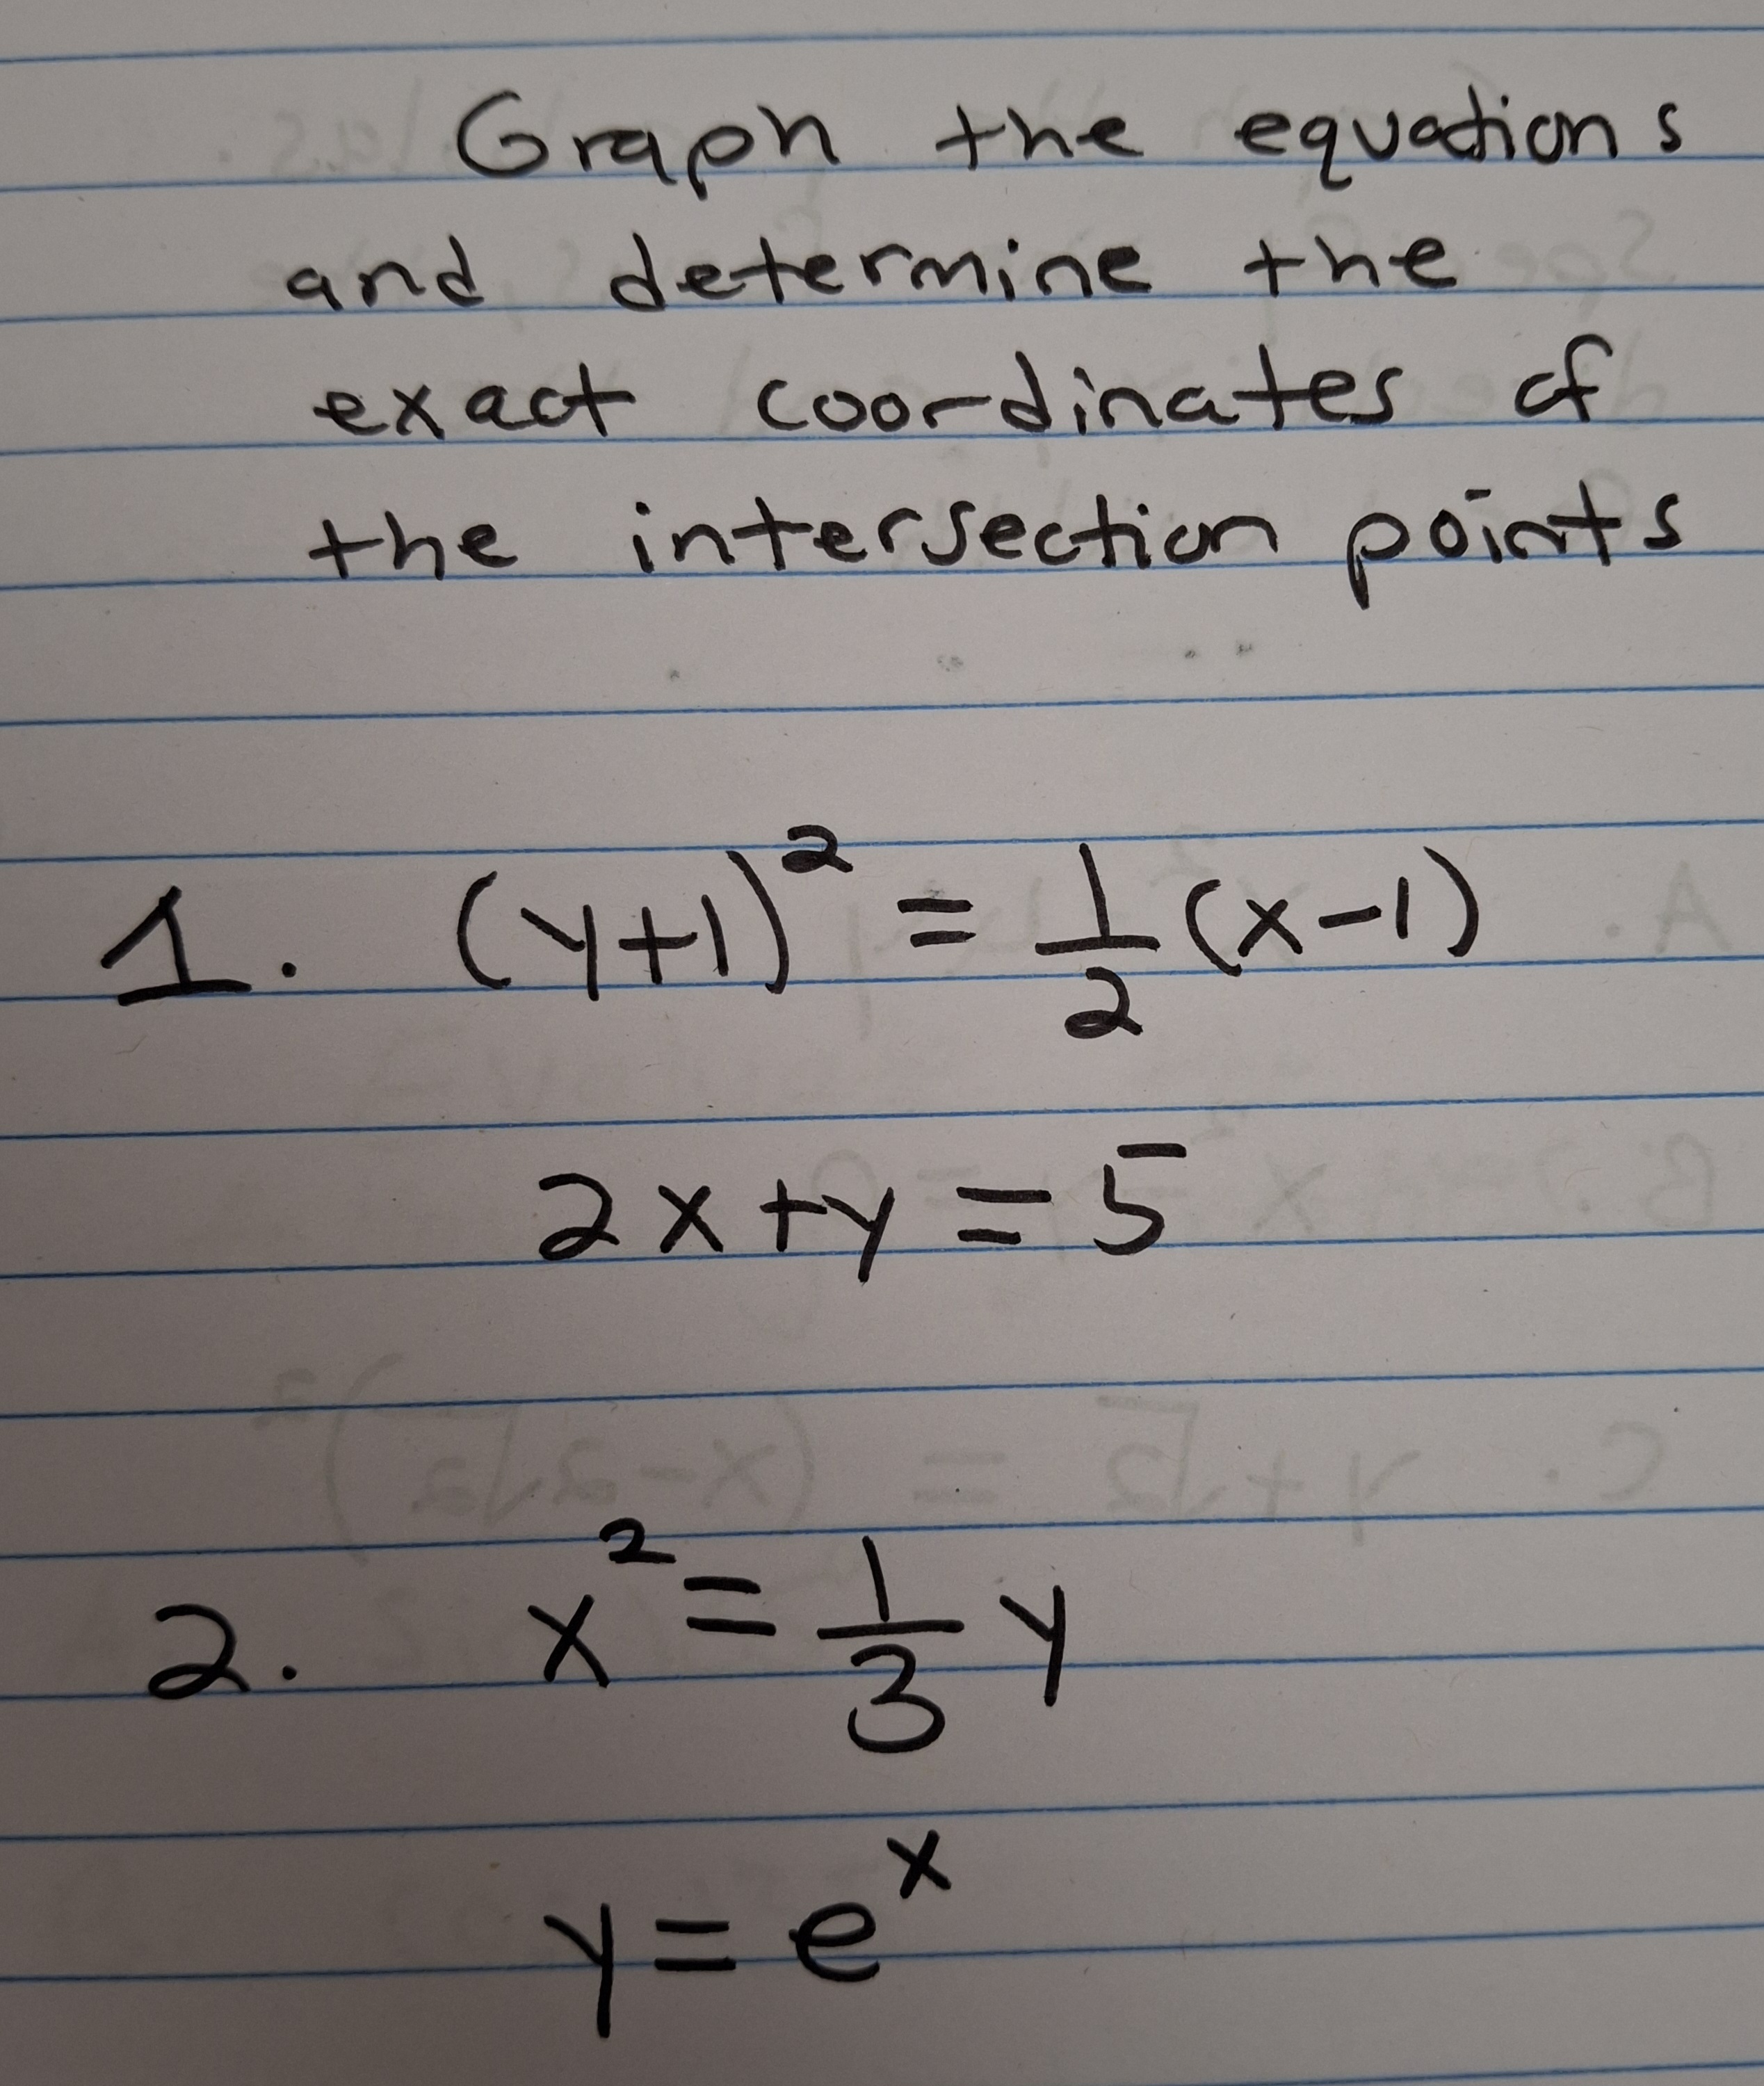 Graph the equations
and determine the
exact coordinates of
the intersection points
1. (y+1)² = 1/2 (x-1)
2x+y=5
2. x² = 1/3 y
y=eˣ